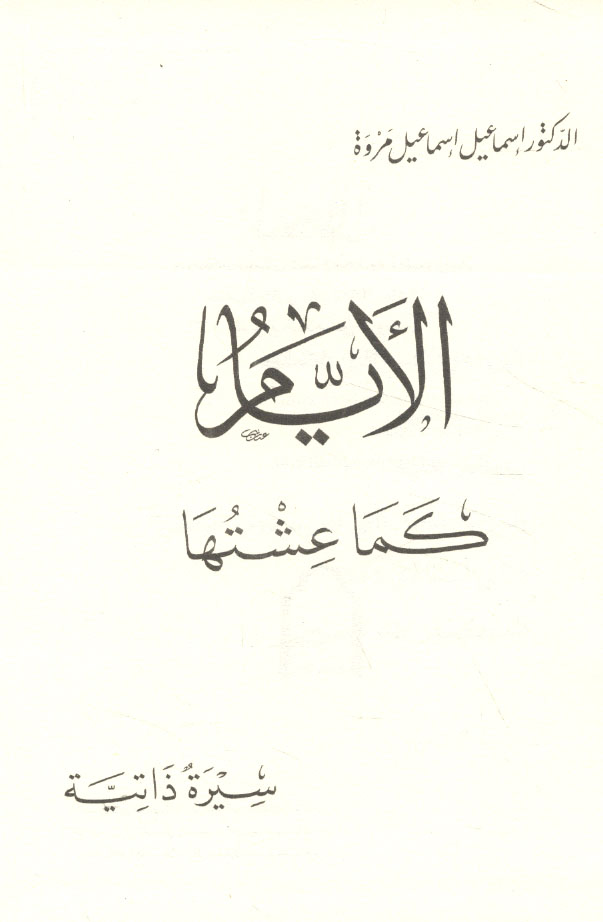 الدّكتور إسماعيل إسماعيل مَرْوَة
الأيَّامُ
كَمَا عِشْتُهَا
سِيْرَةٌ ذَاتِيَّة